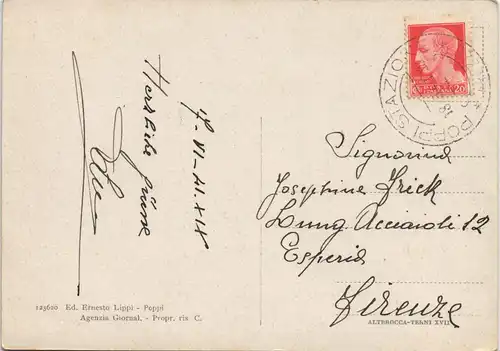 17-VI-41.XIX
Herzliche Grüsse
Signorina
Josephine Frick
Lung Acciaioli 12
Esperia
Firenze
POPPI STAZIONE
20
123620 Ed. Ernesto Lippi - Poppi
Agenzia Giornal. - Propr. ris C.
ALTEROCCA-TERNI XVII